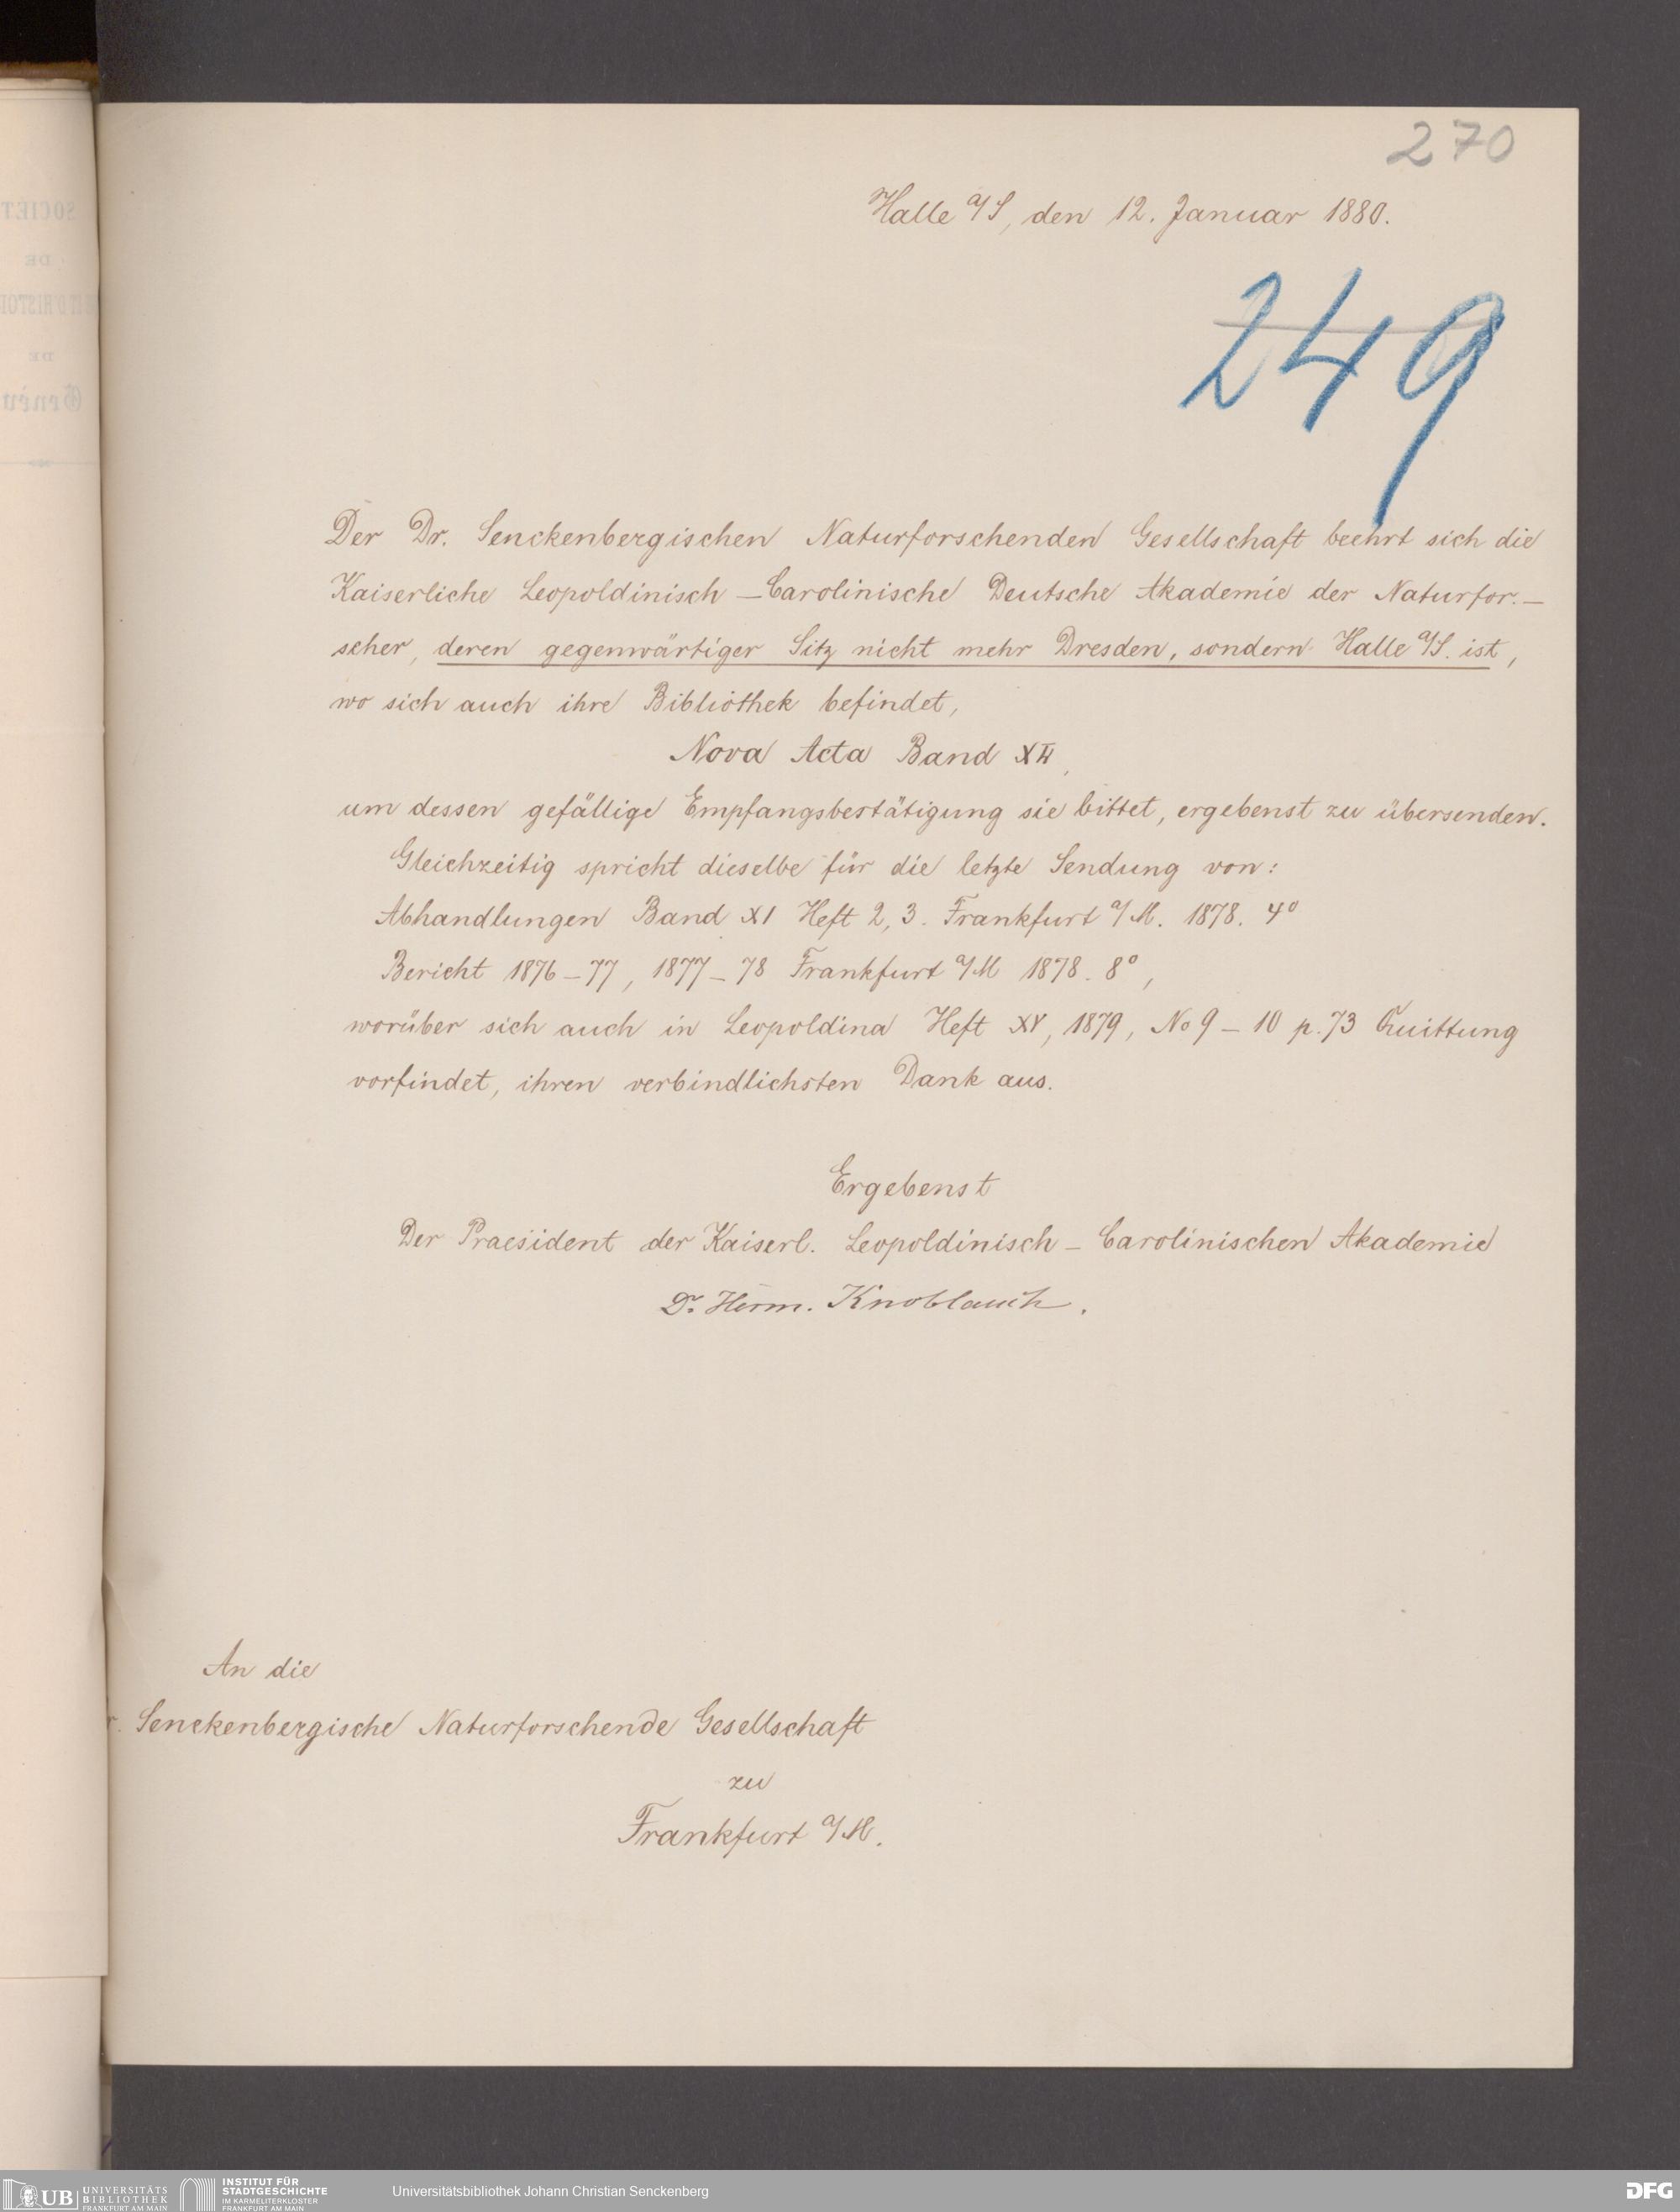 270
Halle a/S, den 12. Januar 1880.
249
Der Dr. Senckenbergischen Naturforschenden Gesellschaft beehrt sich die
Kaiserliche Leopoldinisch-Carolinische Deutsche Akademie der Naturfor.-
scher, deren gegenwärtiger Sitz nicht mehr Dresden, sondern Halle a/S. ist,
wo sich auch ihre Bibliothek befindet,
Nova Acta Band
um dessen gefällige Empfangsbestätigung sie bittet, ergebenst zu übersenden.
Gleichzeitig spricht dieselbe für die letzte Sendung von:
Abhandlungen Band XI Heft 2, 3. Frankfurt a/M. 1878. 4°
Bericht 1876-77, 1877-78 Frankfurt a/M 1878. 8°,
worüber sich auch in Leopoldina Heft XV, 1879, No 9-10 p. 73 Quittung
vorfindet, ihren verbindlichsten Dank aus.
Ergebenst
Der Praesident der Kaiserl. Leopoldinisch-Carolinischen Akademie
Dr. Herm. Knoblauch.
An die
r. Senckenbergische Naturforschende Gesellschaft
zu
Frankfurt a/M.
SOCIÉT
DE
ET D'HISTOI
DE
Genèv
UB UNIVERSITÄTS
BIBLIOTHEK
FRANKFURT AM MAIN
INSTITUT FÜR
STADTGESCHICHTE
IM KARMELITERKLOSTER
FRANKFURT AM MAIN
Universitätsbibliothek Johann Christian Senckenberg
DFG